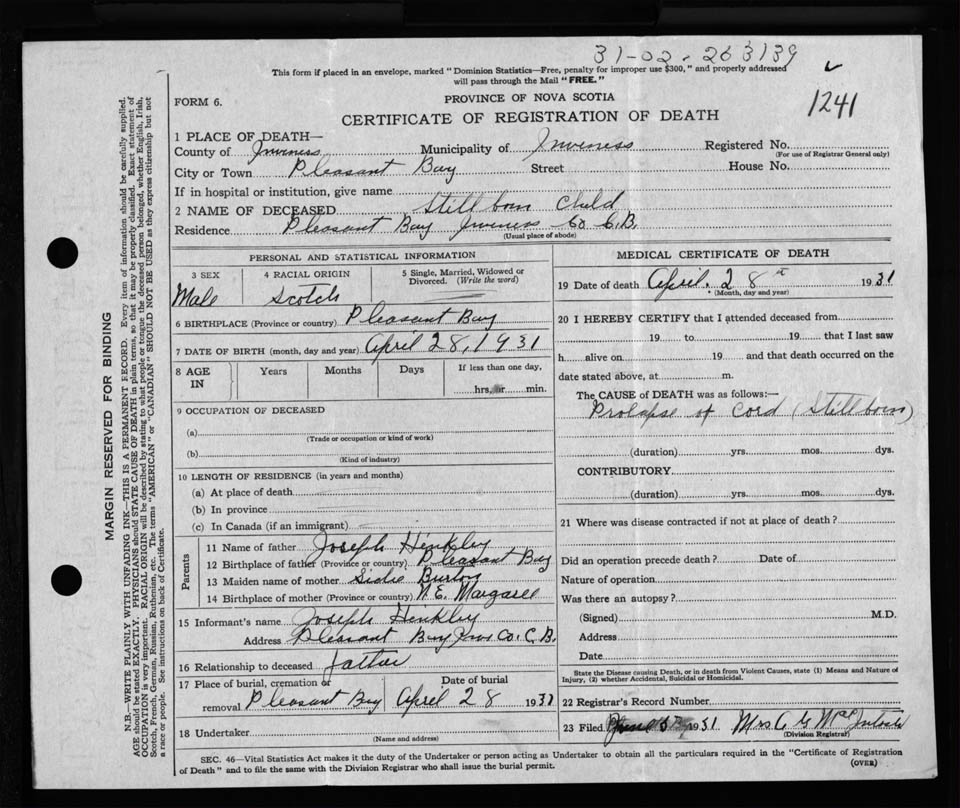 31-02-263139
This form if placed in an envelope, marked "Dominion Statistics—Free, penalty for improper use $300," and properly addressed
will pass through the Mail "FREE."
1241
FORM 6.
PROVINCE OF NOVA SCOTIA
CERTIFICATE OF REGISTRATION OF DEATH
1 PLACE OF DEATH—
County of Inverness Municipality of Inverness Registered No.
(For use of Registrar General only)
City or Town Pleasant Bay Street House No.
If in hospital or institution, give name
2 NAME OF DECEASED Still born Child
Residence Pleasant Bay Inverness Co C.B.
(Usual place of abode)
PERSONAL AND STATISTICAL INFORMATION
3 SEX 4 RACIAL ORIGIN 5 Single, Married, Widowed or
Divorced. (Write the word)
Male Scotch
6 BIRTHPLACE (Province or country) Pleasant Bay
7 DATE OF BIRTH (month, day and year) April 28, 1931
8 AGE IN Years Months Days If less than one day,
hrs. or min.
9 OCCUPATION OF DECEASED
(a)
(Trade or occupation or kind of work)
(b)
(Kind of industry)
10 LENGTH OF RESIDENCE (in years and months)
(a) At place of death
(b) In province
(c) In Canada (if an immigrant)
Parents
11 Name of father Joseph Hinkley
12 Birthplace of father (Province or country) Pleasant Bay
13 Maiden name of mother Sidie Burton
14 Birthplace of mother (Province or country) N.E. Margaree
15 Informant's name Joseph Hinkley
Address Pleasant Bay Inv Co. C.B.
16 Relationship to deceased father
17 Place of burial, cremation or Date of burial
removal Pleasant Bay April 28 1931
18 Undertaker
(Name and address)
MEDICAL CERTIFICATE OF DEATH
19 Date of death April 28th 1931
* (Month, day and year)
20 I HEREBY CERTIFY that I attended deceased from
19 to 19 that I last saw
h alive on 19 and that death occurred on the
date stated above, at m.
The CAUSE of DEATH was as follows:—
Prolapse of Cord (Still born)
(duration) yrs. mos. dys.
CONTRIBUTORY
(duration) yrs. mos. dys.
21 Where was disease contracted if not at place of death?
Did an operation precede death? Date of
Nature of operation
Was there an autopsy?
(Signed) M.D.
Address
Date
State the Disease causing Death, or in death from Violent Causes, state (1) Means and Nature of
Injury, (2) whether Accidental, Suicidal or Homicidal.
22 Registrar's Record Number
23 Filed 1931 Mrs
(Division Registrar)
SEC. 46—Vital Statistics Act makes it the duty of the Undertaker or person acting as Undertaker to obtain all the particulars required in the "Certificate of Registration
of Death" and to file the same with the Division Registrar who shall issue the burial permit.
(OVER)
MARGIN RESERVED FOR BINDING
N.B.—WRITE PLAINLY WITH UNFADING INK—THIS IS A PERMANENT RECORD. Every item of information should be carefully supplied.
AGE should be stated EXACTLY. PHYSICIANS should STATE CAUSE OF DEATH in plain terms, so that it may be properly classified. Exact statement of
OCCUPATION is very important. RACIAL ORIGIN will be described by stating to what people or tongue the deceased person belonged, whether English, Irish,
Scotch, French, German, Russian, Ruthenian, etc. The terms "AMERICAN" or "CANADIAN" SHOULD NOT BE USED as they express citizenship but not
a race or people. See instructions on back of Certificate.